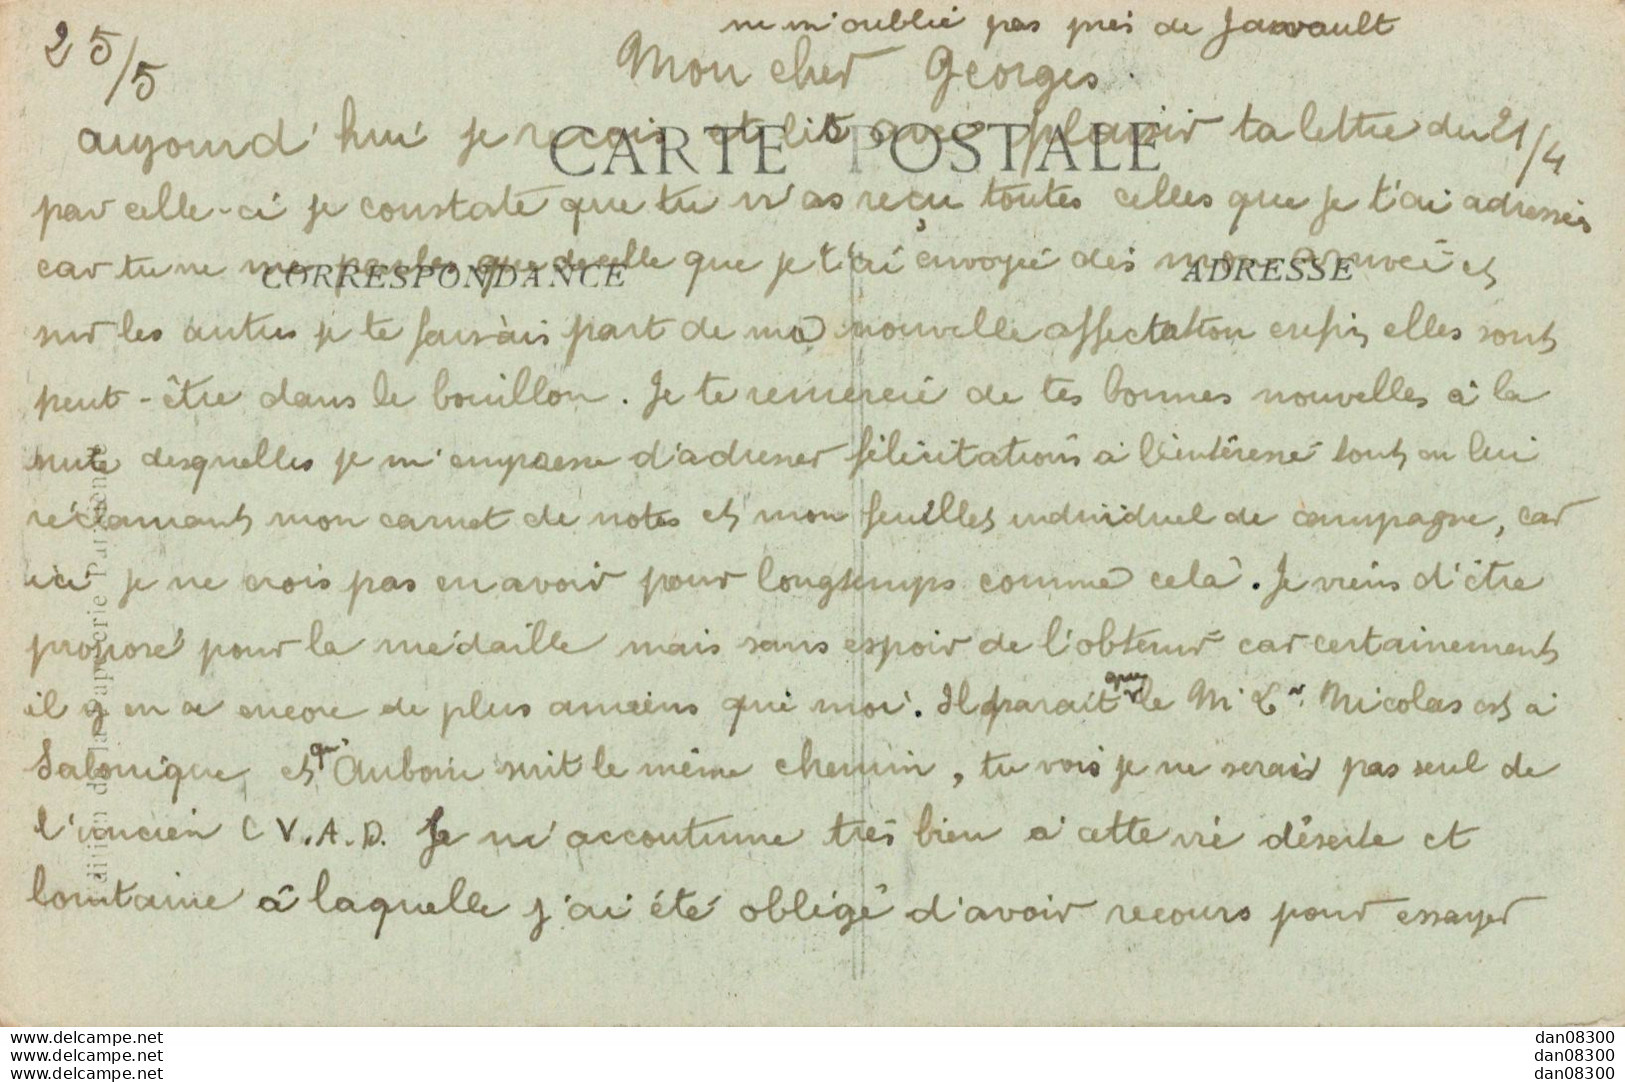 ne m'oublie pas près de Javault
25/5
Mon cher Georges.
CARTE POSTALE
aujourd'hui je reçois et lis avec plaisir ta lettre du 21/4
par celle-ci je constate que tu n'as reçu toutes celles que je t'ai adressées
CORRESPONDANCE
ADRESSE
car tu ne me parles que de celle que je t'ai envoyé dès mon arrivée et
sur les autres je te faisais part de ma nouvelle affectation enfin elles sont
peut-être dans le bouillon. Je te remercie de tes bonnes nouvelles à la
suite desquelles je m'empresse d'adresser félicitations à l'intéressé tout en lui
réclamant mon carnet de notes et mon feuillet individuel de campagne, car
ici je ne crois pas en avoir pour longtemps comme cela. Je viens d'être
proposé pour la médaille mais sans espoir de l'obtenir car certainement
il y en a encore de plus anciens que moi. Il parait que le M. L. Nicolas est à
Salonique et qu' Auboin suit le même chemin, tu vois je ne serais pas seul de
l'ancien C V.A.D. Je m'accoutume très bien à cette vie déserte et
lointaine à laquelle j'ai été obligé d'avoir recours pour essayer
www.delcampe.net
www.delcampe.net
www.delcampe.net
dan08300
dan08300
dan08300